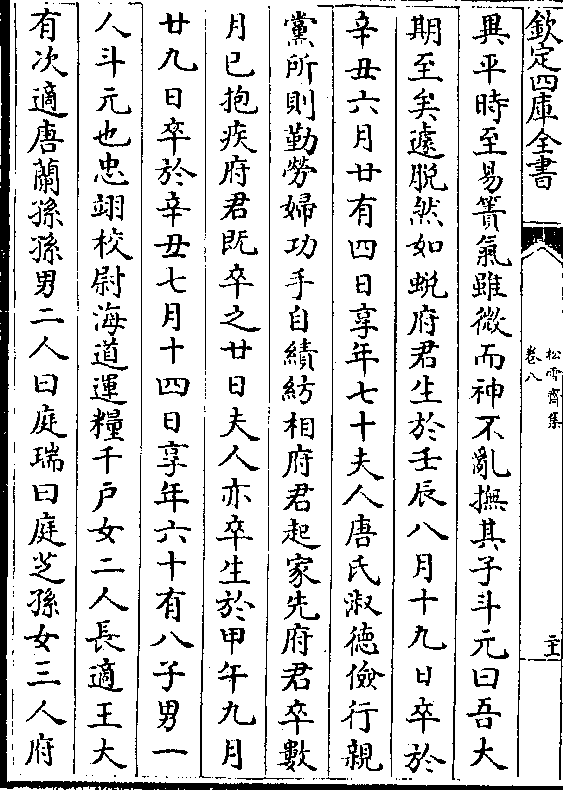 欽定四庫全書
松雪齋集
卷八
二十
異平時至易簀氣雖微而神不亂撫其子斗元曰吾大
期至矣遽脱然如蜕府君生於壬辰八月十九日卒於
辛丑六月廿有四日享年七十夫人唐氏淑德儉行親
黨所則勤勞婦功手自績紡相府君起家先府君卒數
月已抱疾府君既卒之廿日夫人亦卒生於甲午九月
廿九日卒於辛丑七月十四日享年六十有八子男一
人斗元也忠翊校尉海道運糧千户女二人長適王大
有次適唐蘭孫孫男二人曰庭瑞曰庭芝孫女三人府